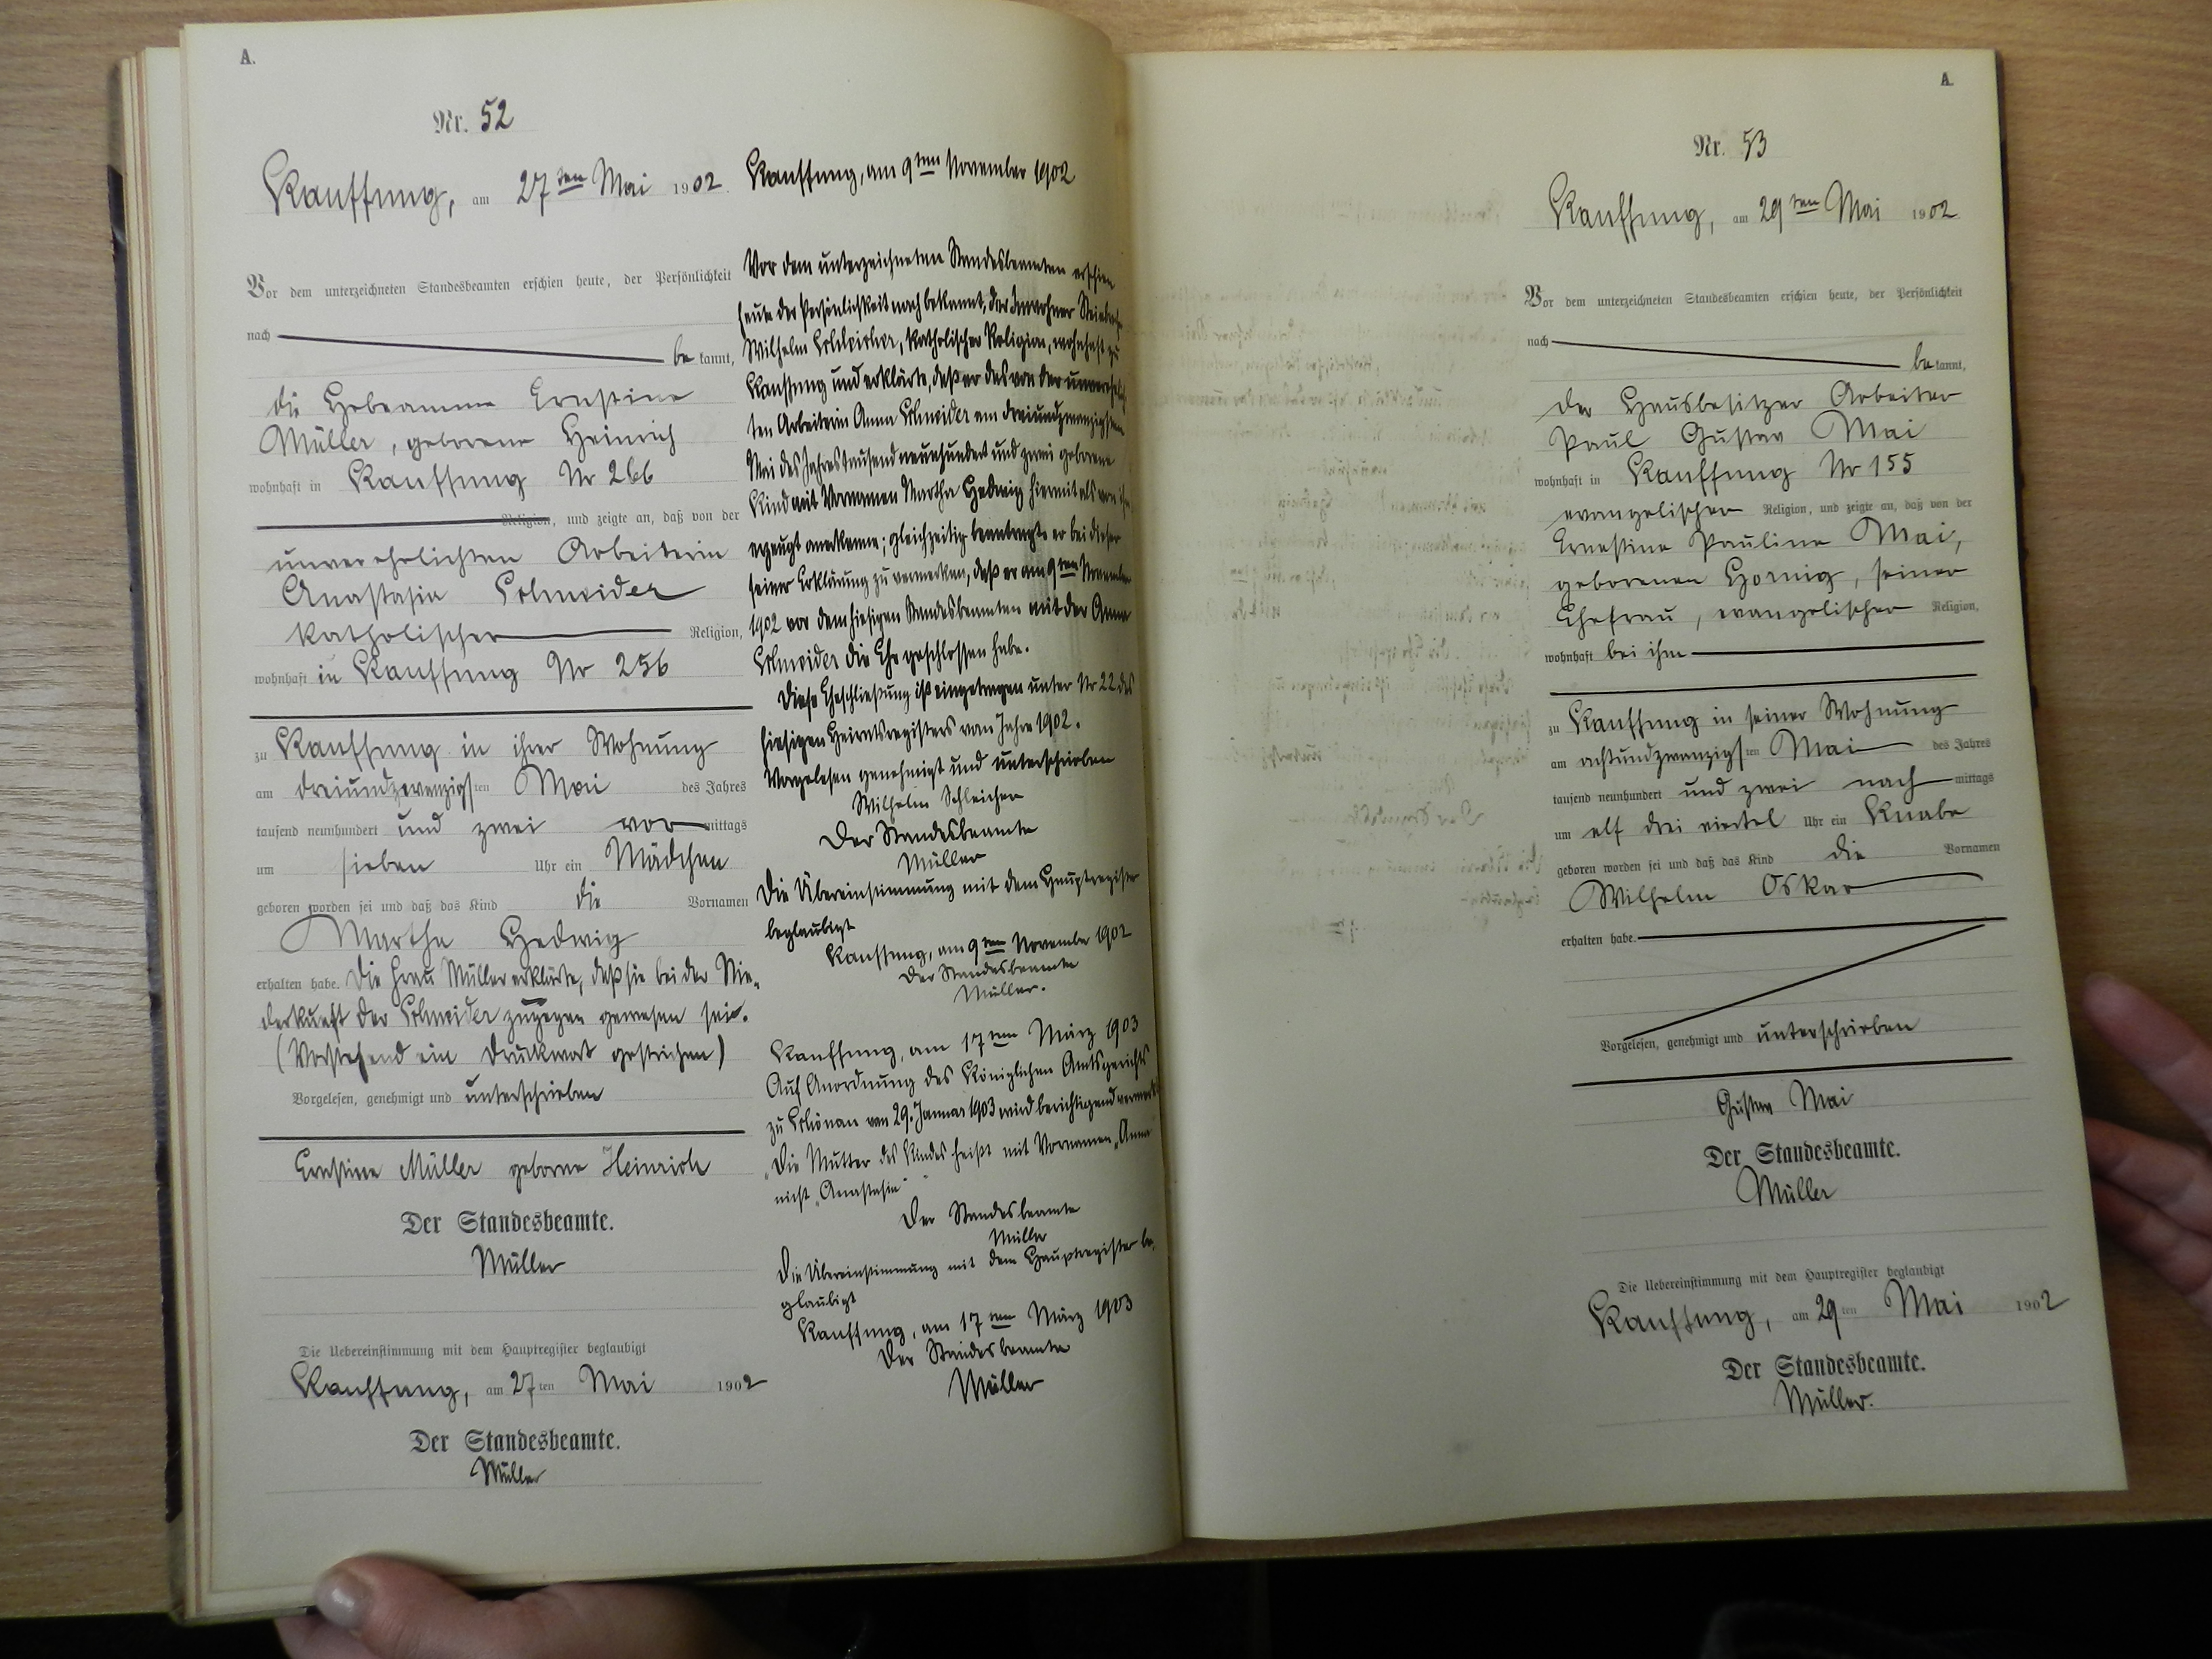 A.
Nr. 52
Kauffung, am 27ten Mai 1902.
Vor dem unterzeichneten Standesbeamten erschien heute, der Persönlichkeit
nach bekannt,
die Hebeamme Ernstine
Müller, geborene Heinrich
wohnhaft in Kauffung Nr 266
Religion, und zeigte an, daß von der
unverehelichten Arbeiterin
Anastasia Schneider
katholischer Religion,
wohnhaft in Kauffung Nr 256
zu Kauffung in ihrer Wohnung
am dreiundzwanzigsten Mai des Jahres
tausend neunhundert und zwei vormittags
um sieben Uhr ein Mädchen
geboren worden sei und daß das Kind die Vornamen
Martha Hedwig
erhalten habe. Die Frau Müller erklärte, daß sie bei der Nie-
derkunft der Schneider zugegen gewesen sei.
(Vorstehend ein Druckwort gestrichen)
Vorgelesen, genehmigt und unterschrieben
Ernstine Müller geborne Heinrich
Der Standesbeamte.
Müller
Die Uebereinstimmung mit dem Hauptregister beglaubigt
Kauffung, am 27ten Mai 1902
Der Standesbeamte.
Müller
Kauffung, am 9ten November 1902
Vor dem unterzeichneten Standesbeamten erschien
heute der Persönlichkeit nach bekannt, der Inwohner
Wilhelm Schleicher, katholischer Religion, wohnhaft zu
Kauffung und erklärte, daß er das von der unverehelich
ten Arbeiterin Anna Schneider am dreiundzwanzigsten
Mai des Jahres tausend neunhundert und zwei geborene
Kind mit Vornamen Martha Hedwig hiermit als von ihm
erzeugt anerkenne; gleichzeitig beantragte er bei dieser
seiner Erklärung zu vermerken, daß er am 9ten November
1902 vor dem hiesigen Standesbeamten mit der Anna
Schneider die Ehe geschlossen habe.
Diese Eheschließung ist eingetragen unter Nr 22 des
hiesigen Heiratsregisters vom Jahre 1902.
Vorgelesen genehmigt und unterschrieben
Wilhelm Schleicher
Der Standesbeamte
Müller
Die Übereinstimmung mit dem Hauptregister
beglaubigt
Kauffung, am 9ten November 1902
Der Standesbeamte
Müller.
Kauffung, am 17ten März 1903
Auf Anordnung des Königlichen Amtsgerichts
zu Schönau vom 29. Januar 1903 wird berichtigend vermerkt
„Die Mutter des Kindes heißt mit Vornamen „Anna
nicht „Anastasia“
Der Standesbeamte
Müller
Die Übereinstimmung mit dem Hauptregister be-
glaubigt
Kauffung, am 17ten März 1903
Der Standesbeamte
Müller
A.
Nr. 53
Kauffung, am 29ten Mai 1902
Vor dem unterzeichneten Standesbeamten erschien heute, der Persönlichkeit
nach bekannt,
der Hausbesitzer Arbeiter
Paul Gustav Mai
wohnhaft in Kauffung Nr 155
evangelischer Religion, und zeigte an, daß von der
Ernestine Pauline Mai,
geborenen Hornig, seiner
Ehefrau, evangelischer Religion,
wohnhaft bei ihm
zu Kauffung in seiner Wohnung
am achtundzwanzigsten Mai des Jahres
tausend neunhundert und zwei nachmittags
um elf drei viertel Uhr ein Knabe
geboren worden sei und daß das Kind die Vornamen
Wilhelm Oskar
erhalten habe.
Vorgelesen, genehmigt und unterschrieben
Gustav Mai
Der Standesbeamte.
Müller
Die Uebereinstimmung mit dem Hauptregister beglaubigt
Kauffung, am 29ten Mai 1902
Der Standesbeamte.
Müller.